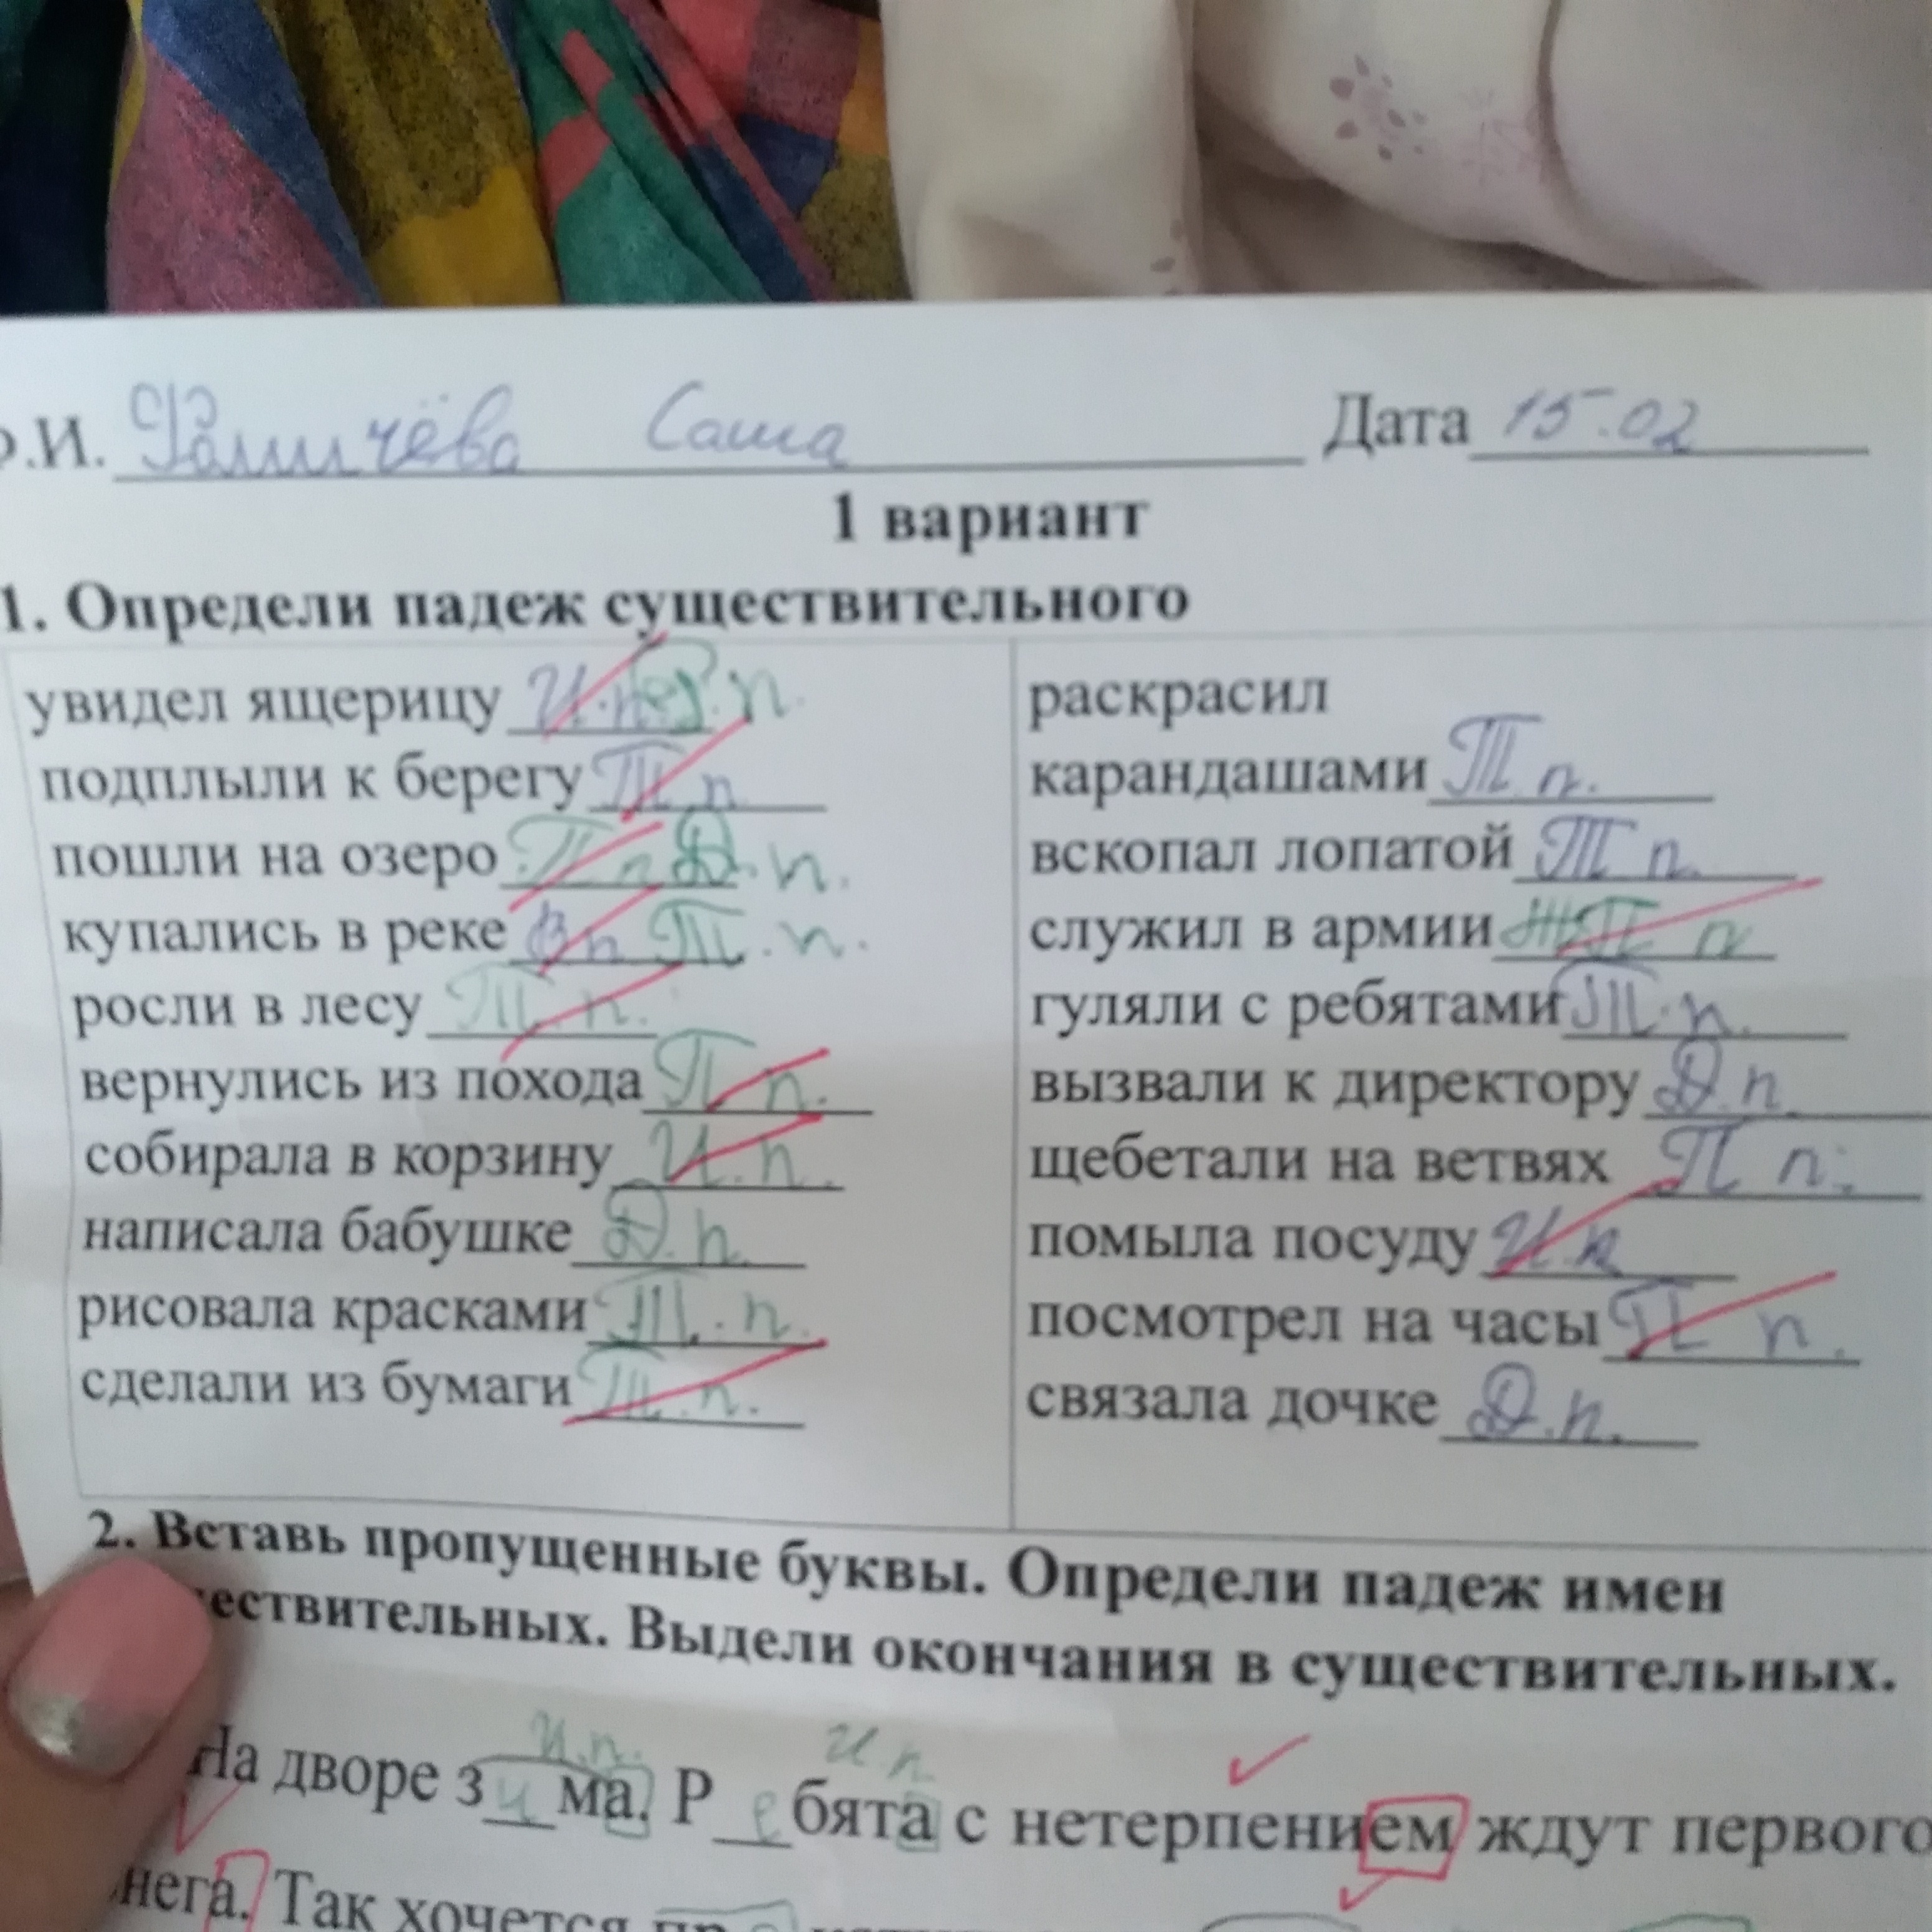 Ф.И. Фомичёва Саша Дата 15.02
1 вариант
1. Определи падеж существительного
увидел ящерицу И.п. Р.п.
подплыли к берегу Т п
пошли на озеро П п Д.п.
купались в реке В п Т.п.
росли в лесу Т п.
вернулись из похода П п.
собирала в корзину И.п.
написала бабушке Д.п.
рисовала красками Т.п.
сделали из бумаги Т.п.
раскрасил
карандашами Т п.
вскопал лопатой Т п.
служил в армии П п
гуляли с ребятами Т.п.
вызвали к директору Д.п.
щебетали на ветвях П п.
помыла посуду И.п
посмотрел на часы П п.
связала дочке Д.п.
2. Вставь пропущенные буквы. Определи падеж имен
ествительных. Выдели окончания в существительных.
И.п. И.п
На дворе з и ма. Р е бята с нетерпением ждут первого
нега. Так хочется